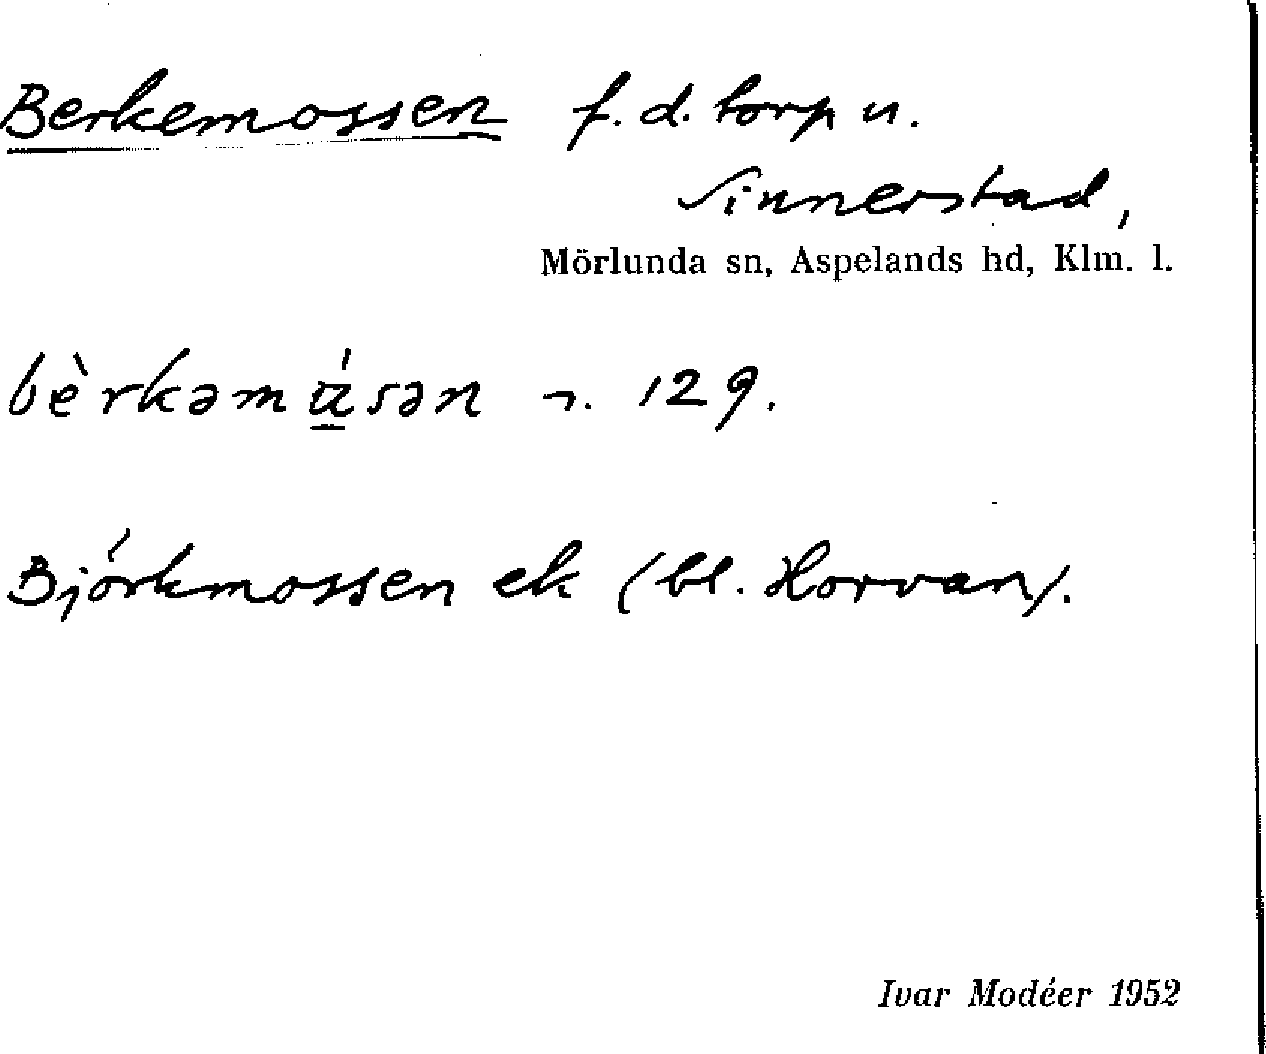 Berkemossen f.d. torp u.
Sinnerstad,
Mörlunda sn, Aspelands hd, Klm. l.
bèrkəmú̲sən 129.
Björkmossen ek (bl. Horvan).
Ivar Modéer 1952